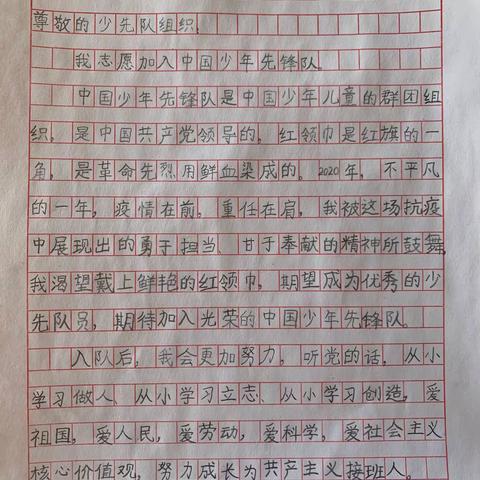 尊敬的少先队组织,
我志愿加入中国少年先锋队。
中国少年先锋队是中国少年儿童的群团组
织,是中国共产党领导的,红领巾是红旗的一
角,是革命先烈用鲜血染成的。2020年,不平凡
的一年,疫情在前,重任在肩,我被这场抗疫
中展现出的勇于担当、甘于奉献的精神所鼓舞,
我渴望戴上鲜艳的红领巾,期望成为优秀的少
先队员,期待加入光荣的中国少年先锋队。
入队后,我会更加努力,听党的话,从小
学习做人、从小学习立志、从小学习创造,爱
祖国,爱人民,爱劳动,爱科学,爱社会主义
核心价值观,努力成长为共产主义接班人。